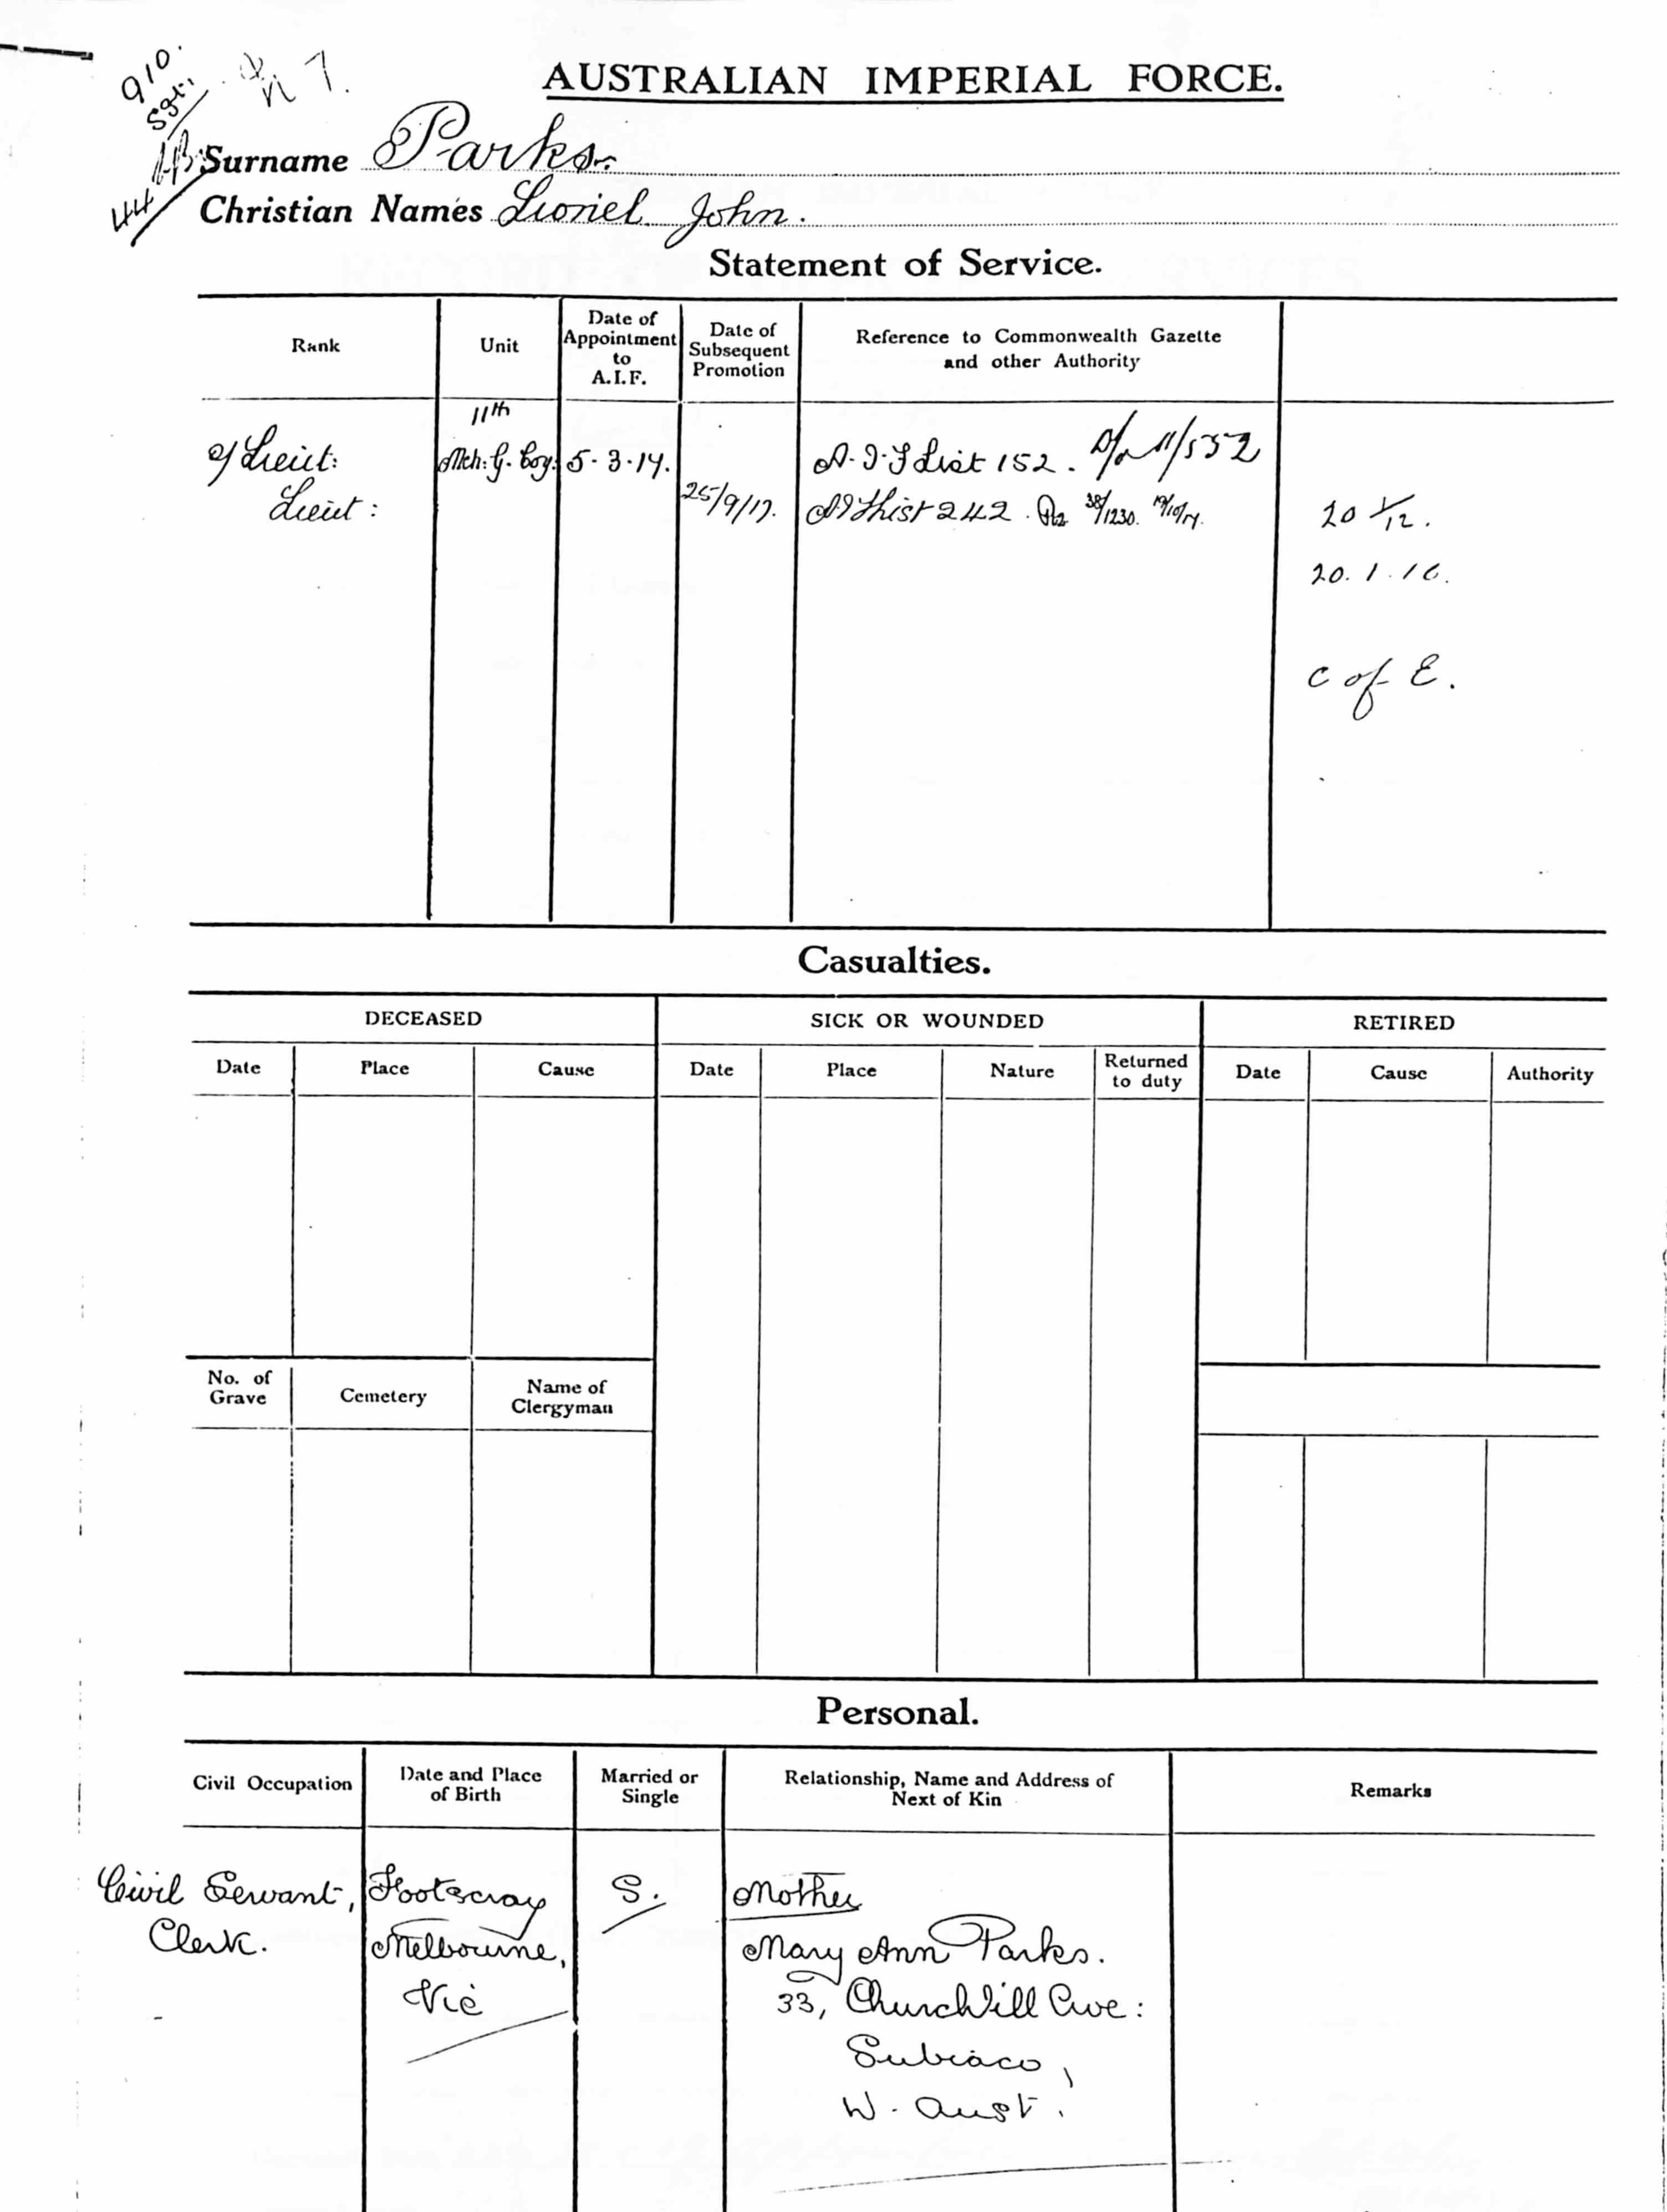 910.
Sgt.
7.
44
AUSTRALIAN IMPERIAL FORCE.
Surname Parks.
Christian Names Lionel John.
Statement of Service.
Rank
Unit
Date of Appointment to A.I.F.
Date of Subsequent Promotion
Reference to Commonwealth Gazette and other Authority
2/Lieut: 11th Mch: G. Coy. 5-3-17. A.I.F List 152. 11/532
Lieut: 25/9/17. AIF List 242. 38/1230. 19/10/17. 20 1/12.
20.1.16.
C of E.
Casualties.
DECEASED
SICK OR WOUNDED
RETIRED
Date
Place
Cause
Date
Place
Nature
Returned to duty
Date
Cause
Authority
No. of Grave
Cemetery
Name of Clergyman
Personal.
Civil Occupation
Date and Place of Birth
Married or Single
Relationship, Name and Address of Next of Kin
Remarks
Civil Servant, Footscray S. Mother
Clerk. Melbourne, Mary Ann Parks.
Vic 33, Churchill Ave:
Subiaco,
W. Aust.